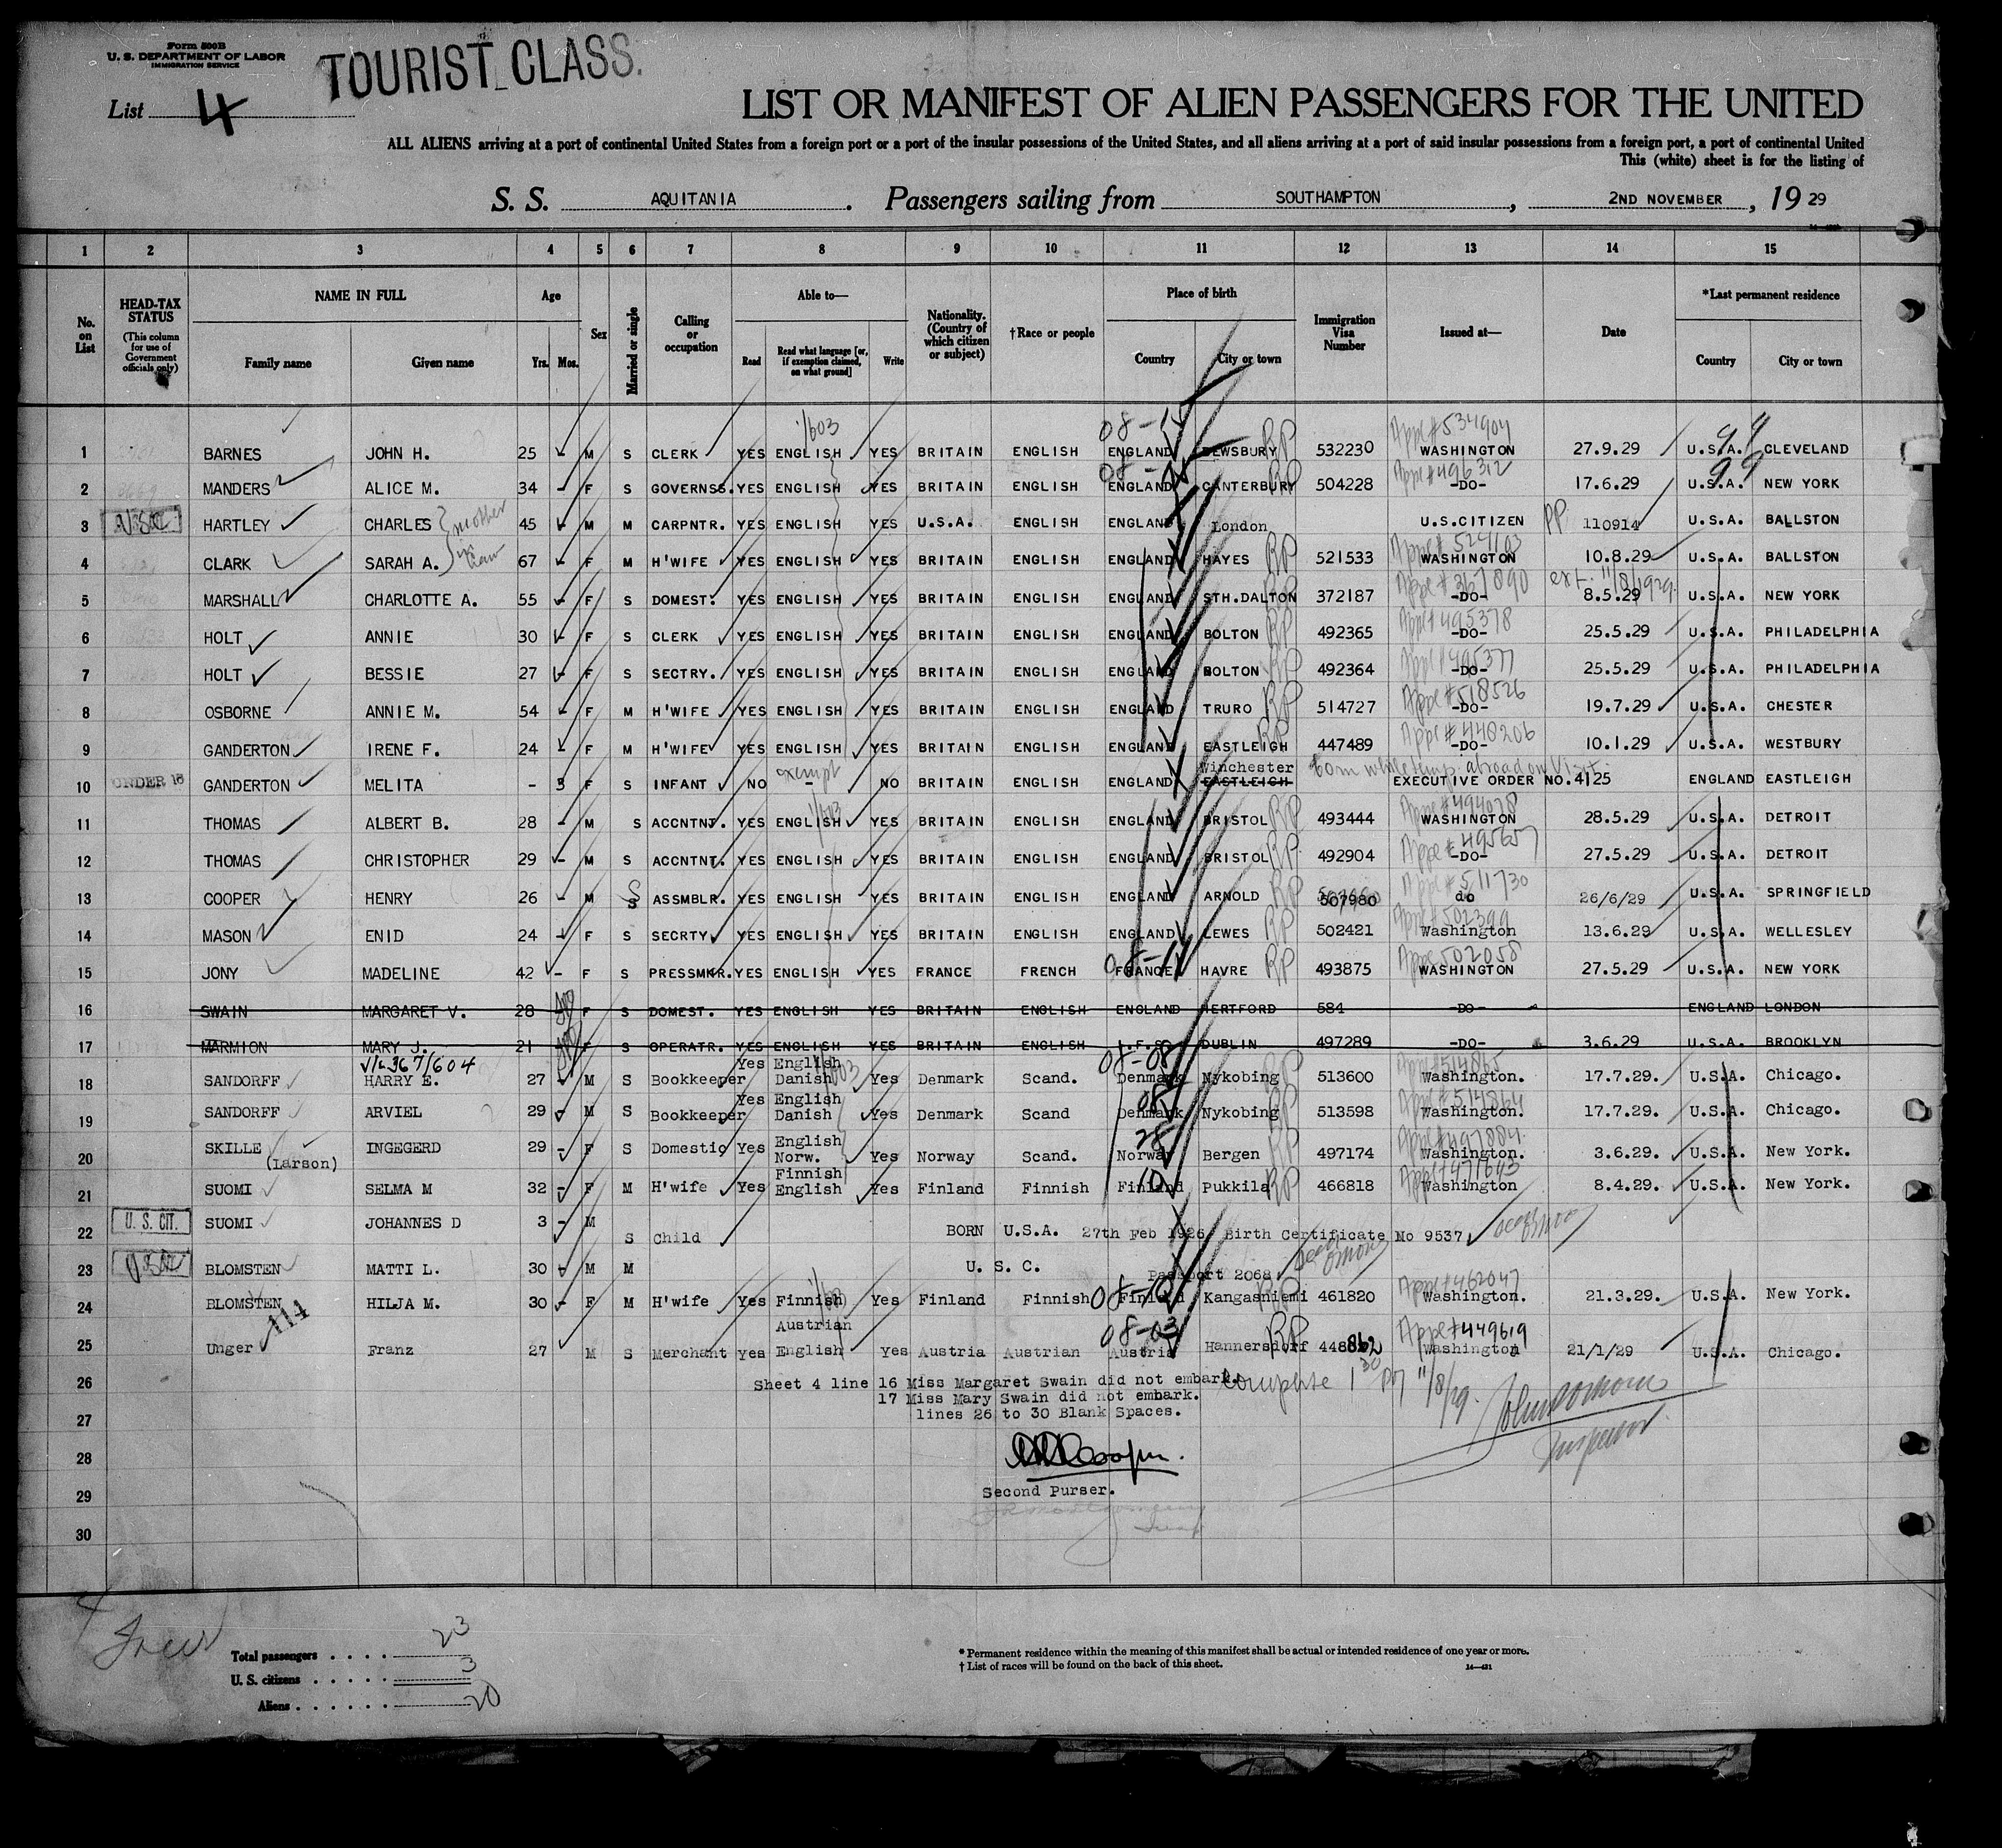 Form 500B
U. S. DEPARTMENT OF LABOR
IMMIGRATION SERVICE
TOURIST CLASS.
List 4
LIST OR MANIFEST OF ALIEN PASSENGERS FOR THE UNITED
ALL ALIENS arriving at a port of continental United States from a foreign port or a port of the insular possessions of the United States, and all aliens arriving at a port of said insular possessions from a foreign port, a port of continental United
This (white) sheet is for the listing of
S. S. AQUITANIA . Passengers sailing from SOUTHAMPTON , 2ND NOVEMBER , 19 29
1 2 3 4 5 6 7 8 9 10 11 12 13 14 15
No. on List
HEAD-TAX STATUS (This column for use of Government officials only)
NAME IN FULL Family name Given name
Age Yrs. Mos.
Sex
Married or single
Calling or occupation
Able to— Read Read what language [or, if exemption claimed, on what ground] Write
Nationality. (Country of which citizen or subject)
†Race or people
Place of birth Country City or town
Immigration Visa Number
Issued at—
Date
*Last permanent residence Country City or town
1/603 08- Appl #534904 99
1 BARNES JOHN H. 25 - M S CLERK YES ENGLISH YES BRITAIN ENGLISH ENGLAND DEWSBURY RP 532230 WASHINGTON 27.9.29 U.S.A. CLEVELAND
08- Appl #496312 99
2 MANDERS ALICE M. 34 - F S GOVERNSS. YES ENGLISH YES BRITAIN ENGLISH ENGLAND CANTERBURY RP 504228 -DO- 17.6.29 U.S.A. NEW YORK
3 HARTLEY CHARLES mother in law 45 - M M CARPNTR. YES ENGLISH YES U.S.A. ENGLISH ENGLAND London U.S.CITIZEN PP 110914 U.S.A. BALLSTON
Appl #524103
4 CLARK SARAH A. 67 - F M H'WIFE YES ENGLISH YES BRITAIN ENGLISH ENGLAND HAYES RP 521533 WASHINGTON 10.8.29 U.S.A. BALLSTON
Appl #367890 ext. 11/8/1929
5 MARSHALL CHARLOTTE A. 55 - F S DOMEST. YES ENGLISH YES BRITAIN ENGLISH ENGLAND STH.DALTON RP 372187 -DO- 8.5.29 U.S.A. NEW YORK
Appl #495378
6 HOLT ANNIE 30 - F S CLERK YES ENGLISH YES BRITAIN ENGLISH ENGLAND BOLTON RP 492365 -DO- 25.5.29 U.S.A. PHILADELPHIA
Appl #495377
7 HOLT BESSIE 27 - F S SECTRY. YES ENGLISH YES BRITAIN ENGLISH ENGLAND BOLTON RP 492364 -DO- 25.5.29 U.S.A. PHILADELPHIA
Appl #518526
8 OSBORNE ANNIE M. 54 - F M H'WIFE YES ENGLISH YES BRITAIN ENGLISH ENGLAND TRURO RP 514727 -DO- 19.7.29 U.S.A. CHESTER
Appl #448206
9 GANDERTON IRENE F. 24 - F M H'WIFE YES ENGLISH YES BRITAIN ENGLISH ENGLAND EASTLEIGH RP 447489 -DO- 10.1.29 U.S.A. WESTBURY
exempt Winchester born while temp. abroad on visit
10 UNDER 16 GANDERTON MELITA - 3 F S INFANT NO - NO BRITAIN ENGLISH ENGLAND EASTLEIGH EXECUTIVE ORDER NO.4125 ENGLAND EASTLEIGH
Appl #494078
11 THOMAS ALBERT B. 28 - M S ACCNTNT. YES ENGLISH YES BRITAIN ENGLISH ENGLAND BRISTOL RP 493444 WASHINGTON 28.5.29 U.S.A. DETROIT
12 THOMAS CHRISTOPHER 29 - M S ACCNTNT. YES ENGLISH YES BRITAIN ENGLISH ENGLAND BRISTOL RP 492904 -DO- 27.5.29 U.S.A. DETROIT
Appl #511730
13 COOPER HENRY 26 - M S ASSMBLR. YES ENGLISH YES BRITAIN ENGLISH ENGLAND ARNOLD RP 507980 do 26/6/29 U.S.A. SPRINGFIELD
Appl #502399
14 MASON ENID 24 - F S SECRTY. YES ENGLISH YES BRITAIN ENGLISH ENGLAND LEWES RP 502421 Washington 13.6.29 U.S.A. WELLESLEY
Appl 502058
15 JONY MADELINE 42 - F S PRESSMKR. YES ENGLISH YES FRANCE FRENCH FRANCE HAVRE RP 493875 WASHINGTON 27.5.29 U.S.A. NEW YORK
16 SWAIN MARGARET V. 28 F S DOMEST. YES ENGLISH YES BRITAIN ENGLISH ENGLAND HERTFORD 584 -DO- - ENGLAND LONDON
17 MARMION MARY J. 21 F S OPERATR. YES ENGLISH YES BRITAIN ENGLISH I.F.S. DUBLIN 497289 -DO- 3.6.29 U.S.A. BROOKLYN
Yes English 08-08 514865
18 SANDORFF HARRY E. 27 - M S Bookkeeper Danish Yes Denmark Scand. Denmark Nykobing RP 513600 Washington. 17.7.29. U.S.A. Chicago.
Yes English 08 514864
19 SANDORFF ARVIEL 29 - M S Bookkeeper Danish Yes Denmark Scand Denmark Nykobing RP 513598 Washington. 17.7.29. U.S.A. Chicago.
English 28 Appl #497884
20 SKILLE (Larson) INGEGERD 29 - F S Domestic Yes Norw. Yes Norway Scand. Norway Bergen RP 497174 Washington. 3.6.29. U.S.A. New York.
Finnish 10 Appl #471643
21 SUOMI SELMA M 32 - F M H'wife Yes English Yes Finland Finnish Finland Pukkila RP 466818 Washington 8.4.29. U.S.A. New York.
22 U. S. CIT. SUOMI JOHANNES D 3 - M S Child BORN U.S.A. 27th Feb 1926 Birth Certificate No 9537
23 USC BLOMSTEN MATTI L. 30 - M M U. S. C. Passport 2068
08-10 Appl #462047
24 BLOMSTEN HILJA M. 30 - F M H'wife Yes Finnish Yes Finland Finnish Finland Kangasniemi RP 461820 Washington. 21.3.29. U.S.A. New York.
114 Austrian 08-03 Appl #449619
25 Unger Franz 27 M S Merchant Yes English Yes Austria Austrian Austria Hannersdorf RP 448862 Washington 21/1/29 U.S.A. Chicago.
26 Sheet 4 line 16 Miss Margaret Swain did not embark. Complete 1 30 PM 11/8/29.
17 Miss Mary Swain did not embark.
27 lines 26 to 30 Blank Spaces.
Inspector
28
Second Purser.
29
30
Total passengers . . . . 23
U. S. citizens . . . . . 3
Aliens . . . . . . 20
* Permanent residence within the meaning of this manifest shall be actual or intended residence of one year or more.
† List of races will be found on the back of this sheet.
14—431